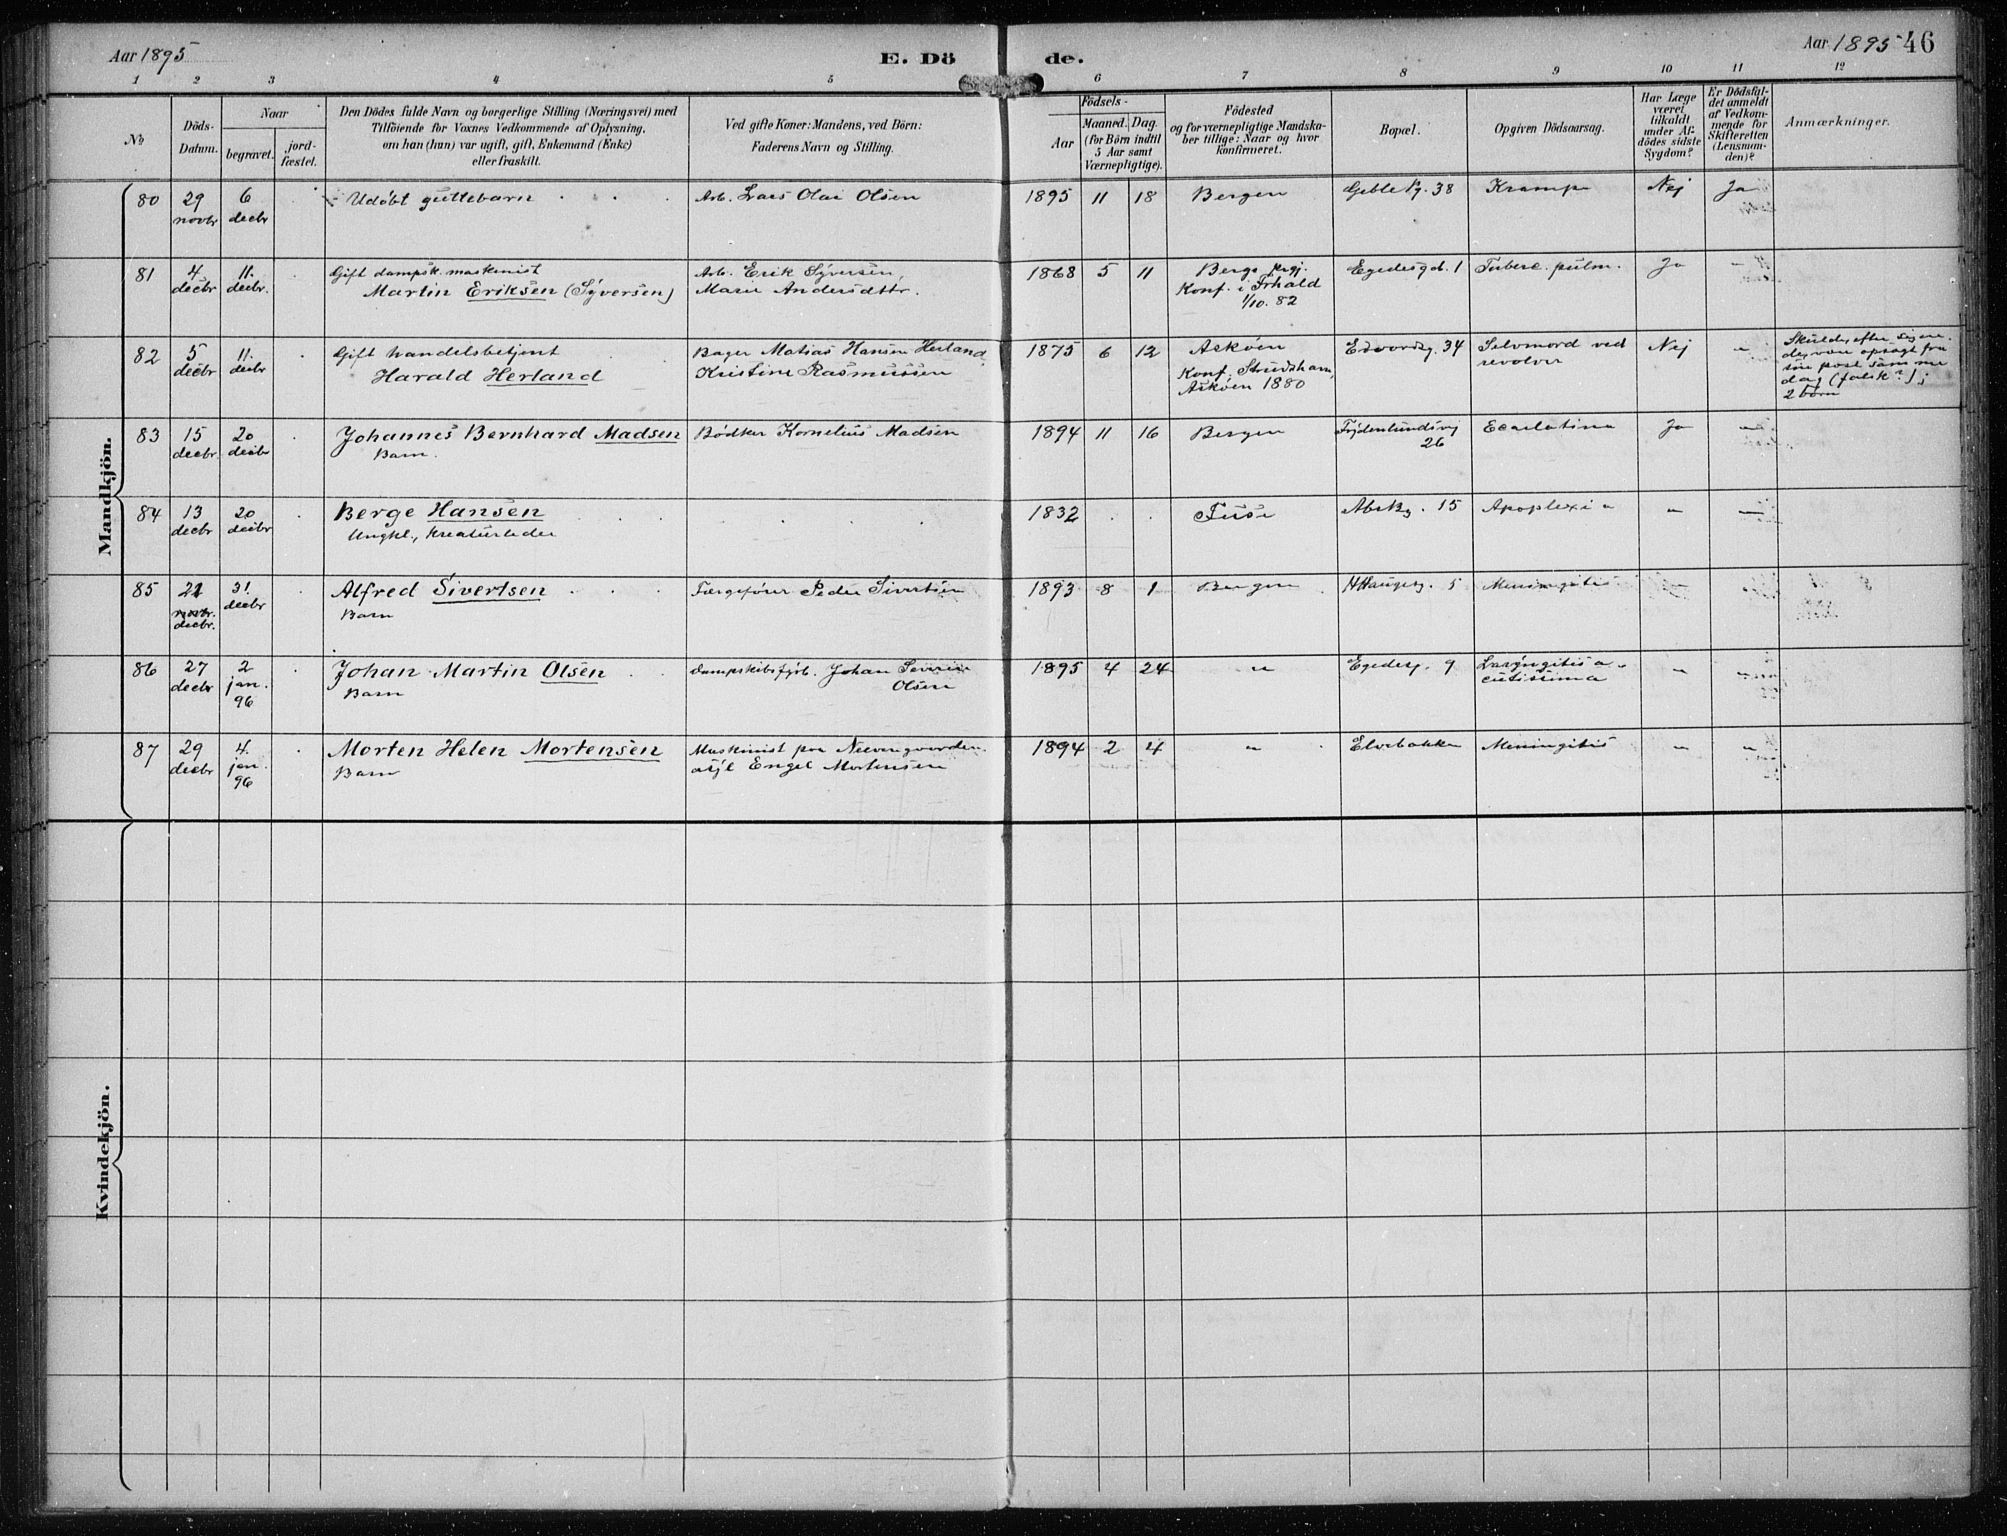 Aar 1895
E. Dö
de.
Aar 1895
46
1 2 3 4 5 6 7 8 9 10 11 12
№
Döds-Datum.
Naar
begravet.
jord-fæstet.
Den Dödes fulde Navn og borgerlige Stilling (Næringsvei) med
Tilföiende for Voxnes Vedkommende af Oplysning,
om han (hun) var ugift, gift, Enkemand (Enke)
eller fraskilt.
Ved gifte Koner: Mandens, ved Börn:
Faderens Navn og Stilling.
Födsels-
Aar
Maaned. Dag.
(for Börn indtil
5 Aar samt
Værnepligtige).
Födested
og for værnepligtige Mandska-
ber tillige: Naar og hvor
konfirmeret.
Bopæl.
Opgiven Dödsaarsag.
Har Læge
været
tilkaldt
under Af-
dödes sidste
Sygdom?
Er Dödsfal-
det anmeldt
af Vedkom-
mende for
Skifteretten
(Lensman-
den)?
Anmærkninger.
Mandkjön.
80 29 novbr 6 decbr Udøbt guttebarn Arb. Lars Olai Olsen 1895 11 18 Bergen Geble Pg. 38 Krampe Nej Ja
81 4 decbr 11. decbr. Gift dampsk. maskinist
Martin Eriksen (Syversen) Arb. Erik Syversen,
Marie Andersdttr. 1868 5 11 Bergs prgj.
Konf. i Frhald
1/10. 82 Egedesgd. 1 Tuberc. pulm. Ja "
82 5 decbr 11. decbr Gift handelsbetjent
Harald Herland Bager Matias Hansen Herland,
Kristine Rasmussen 1875 6 12 Askøen
Konf. Strudshavn,
Askøen 1880 Edvardsg. 34 Selvmord ved
revolver Nej " Skulde, efter sigen-
de, være opsagt fra
sin post samme
dag (falsk?);
2 børn
83 15 decbr 20 decbr Johannes Bernhard Madsen
Barn. Bødker Kornelius Madsen 1894 11 16 Bergen Frydenlundsvj
26 Scarlatina Ja "
84 13 decbr 20 decbr Berge Hansen
Ungkl., Kreaturleder 1832 Fuse 15 Apoplexia " "
85 21 novbr. decbr. 31 decbr Alfred Sivertsen
Barn Færgefører Peder Sivertsen 1893 8 1 Bergen HHaugesg. 5 Meningitis " "
86 27 decbr 2 jan. 96 Johan Martin Olsen
Barn Dampskibsfyrb. Johan Severin
Olsen 1895 4 24 " Egedesg. 9 Laryngitis a-
cutissima " "
87 29 decbr 4. jan. 96 Morten Helen Mortensen
Barn Maskinist paa Neevengaarden
asyl Engel Mortensen 1894 2 4 " Elvebakken Meningitis " "
Kvindekjön.